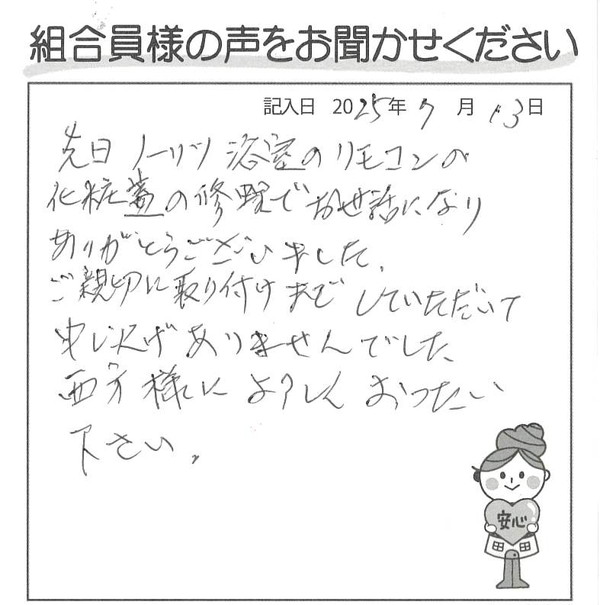 組合員様の声をお聞かせください
記入日 2025年 7月 13日
先日ノーリツ浴室のリモコンの
化粧蓋の修理でお世話になり
ありがとうございました。
ご親切に取り付けまでしていただいて
申し訳ありませんでした
西方様によろしくおつたい
下さい。
安心